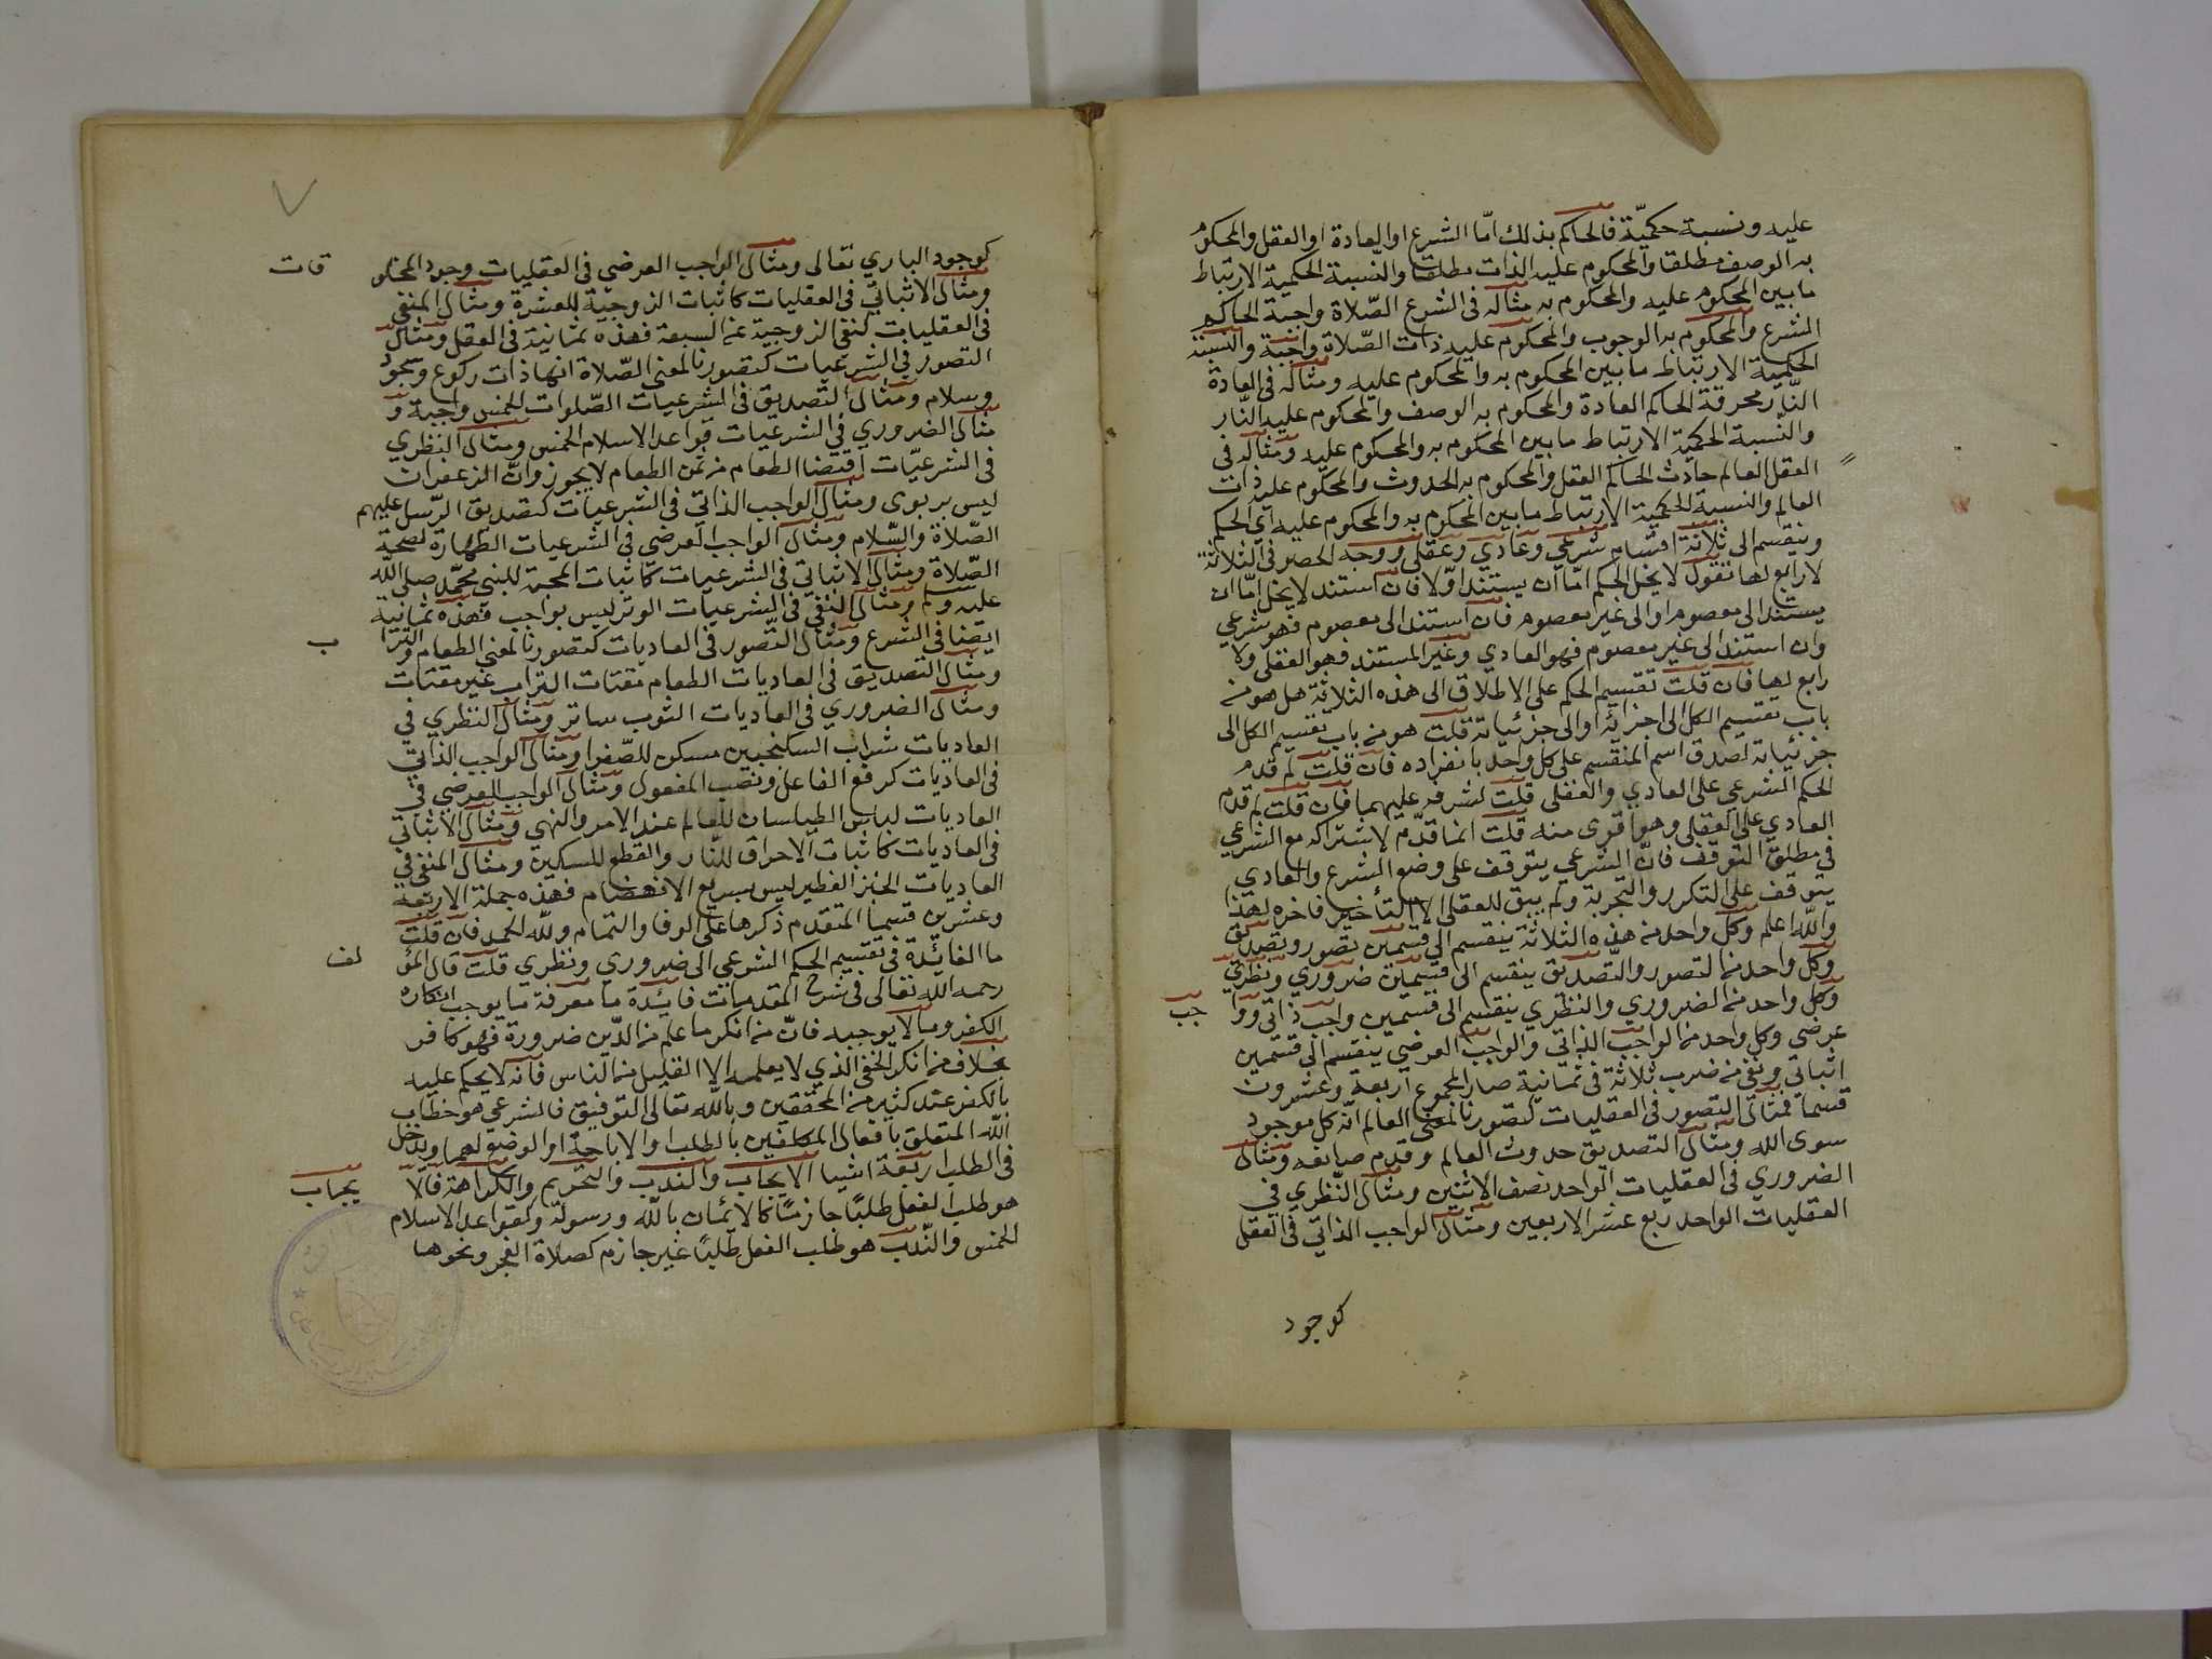 عليه ونسبة حكميّة فالحاكم بذلك امّا الشرع او العادة او العقل والمحكوم
به الوصف مطلقا والمحكوم عليه الذات مطلقا والنسبة الحكمية الارتباط
ما بين المحكوم عليه والمحكوم به مثاله فى الشرع الصّلاة واجبة الحاكم
الشرع والمحكوم به الوجوب والمحكوم عليه ذات الصّلاة واجبة والنسبة
الحكمية الارتباط ما بين المحكوم به والمحكوم عليه ومثاله فى العادة
النّار محرقة الحاكم العادة والمحكوم به الوصف والمحكوم عليه النّار
والنسبة الحكمية الارتباط ما بين المحكوم به والمحكوم عليه ومثاله في
العقل العالم حادث الحاكم العقل والمحكوم به الحدوث والمحكوم عليه ذات
العالم والنسبة الحكمية الارتباط ما بين المحكوم به والمحكوم عليه اي الحكم
وينقسم الى ثلاثة اقسام شرعي وعادي وعقلي ووجه الحصر فى الثلاثة
لا رابع لها نقول لا يخل الحكم امّا ان يستند اوّلا فان استند لا يخل امّا ان
يستند الى معصوم او الى غير معصوم فان استند الى معصوم فهو شرعي
وان استند الى غير معصوم فهو العادي وغير المستند فهو العقلي ولا
رابع لها فان قلت تقسيم الحكم على الاطلاق الى هذه الثلاثة هل هو من
باب تقسيم الكل الى اجزائه او الى جزئياته قلت هو من باب تقسيم الكل الى
جزئياته لصدق اسم المنقسم على كل واحد بانفراده فان قلت لم قدم
الحكم الشرعي على العادي والعقلي قلت لشرفه عليهما فان قلت لم قدّم
العادي على العقلي وهو اقوى منه قلت انما قدّم لاشتراكه مع الشرعي
في مطلق التوقف فانّ الشرعي يتوقف على وضع الشرع والعادي
يتوقف على التكرر والتجربة ولم يبق للعقلي الا التأخير فاخره لهذا
والله اعلم وكل واحد من هذه الثلاثة ينقسم الى قسمين تصور وتصديق
وكل واحد من التصور والتّصديق ينقسم الى قسمين ضروري ونظري
وكل واحد من الضروري والنظري ينقسم الى قسمين واجب ذاتي ووا جب
عرضي وكل واحد من الواجب الذاتي والواجب العرضي ينقسم الى قسمين
اثباتي ونفي من ضرب ثلاثة فى ثمانية صار المجموع اربعة وعشرون
قسما فمثال التصور فى العقليات كتصورنا لمعنى العالم انّه كل موجود
سوى الله ومثال التصديق حدوث العالم وقدم صانعه ومثال
الضروري فى العقليات الواحد نصف الاثنين ومثال النّظري في
العقليات الواحد ربع عشر الاربعين ومثال الواجب الذاتي فى العقل
كوجود
٧
كوجود الباري تعالى ومثال الواجب العرضي فى العقليات وجود المخلو قات
ومثال الاثباتي فى العقليات كاثبات الزوجية للعشرة ومثال المنفي
فى العقليات كنفي الزوجية عن السبعة فهذه ثمانية فى العقل ومثال
التصور في الشرعيات كتصورنا لمعنى الصّلاة انها ذات ركوع وسجود
وسلام ومثال التصديق فى الشرعيات الصّلوات الخمس واجبة و
مثال الضروري في الشرعيات قواعد الاسلام الخمس ومثال النظري
فى الشرعيّات اقتضا الطعام من ثمن الطعام لا يجوز وانّ الزعفران
ليس بربوى ومثال الواجب الذاتي فى الشرعيات كتصديق الرّسل عليهم
الصّلاة والسّلام ومثال الواجب العرضي فى الشرعيات الطهارة لصحة
الصّلاة ومثال الاثباتي فى الشرعيات كاثبات المحبة للنبي محمّد صلى الله
عليه وسلم ومثال النفي فى الشرعيات الوتر ليس بواجب فهذه ثمانية
ايضا فى الشرع ومثال التّصور فى العاديات كتصورنا لمعنى الطعام والترا ب
ومثال التصديق فى العاديات الطعام مقتات التراب غير مقتات
ومثال الضروري فى العاديات الثوب ساتر ومثال النظري في
العاديات شراب السكنجبين مسكن للصّفرا ومثال الواجب الذاتي
فى العاديات كرفع الفاعل ونصب المفعول ومثال الواجب العرضي في
العاديات لباس الطيلسان للعالم عند الامر والنهي ومثال الاثباتي
فى العاديات كاثبات الاحراق للنّار والقطع للسكين ومثال المنفي في
العاديات الخبز الفطير ليس بسريع الانهضام فهذه جملة الاربعة
وعشرين قسما المتقدم ذكرها على الوفا والتمام ولله الحمد فان قلت
ما الفائدة فى تقسيم الحكم الشرعي الى ضروري ونظري قلت قال المؤ لف
رحمه الله تعالى فى شرح المقدمات فائدة ما معرفة ما يوجب انكاره
الكفر وما لا يوجبه فانّ من انكر ما علم من الدّين ضرورة فهو كافر
بخلاف من انكر الخفي الذي لا يعلمه الا القليل من الناس فانه لا يحكم عليه
بالكفر عند كثير من المحققين وبالله تعالى التوفيق فالشرعي هو خطاب
الله المتعلق بافعال المكلفين بالطلب او الاباحة او الوضع لهما ويدخل
فى الطلب اربعة اشيا الايجاب والندب والتحريم والكراهة فالا يجاب
هو طلب الفعل طلبًا جازمًا كالايمان بالله ورسوله وكقواعد الاسلام
الخمس والنّدب هو طلب الفعل طلبًا غير جازم كصلاة الفجر ونحوها